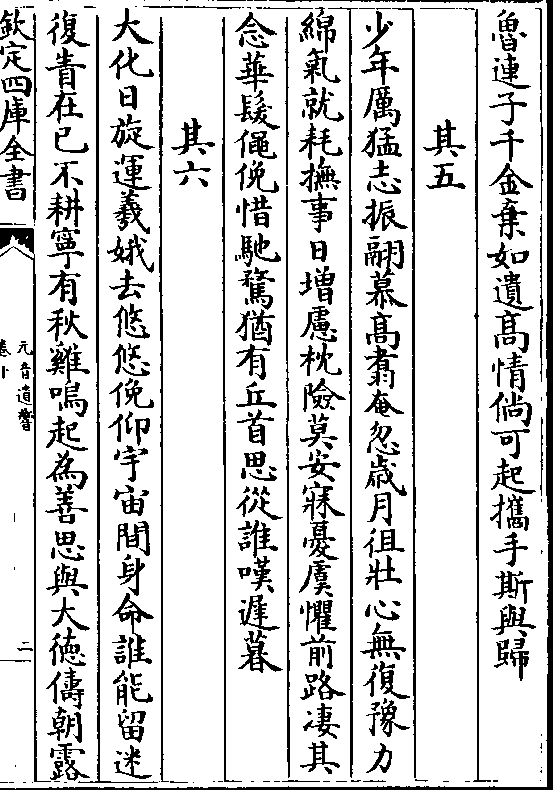 魯連子千金棄如遺髙情倘可起攜手斯與歸
其五
少年厲猛志振翮慕髙翥奄忽歳月徂壯心無復豫力
綿氣就耗撫事日增慮枕險莫安寐憂虞懼前路凄其
念華髮僶俛惜馳騖猶有丘首思從誰嘆遲暮
其六
大化日旋運羲娥去悠悠俛仰宇宙間身命誰能留迷
復責在已不耕寧有秋雞鳴起為善思與大徳儔朝露
欽定四庫全書
元音遺響
卷十
二